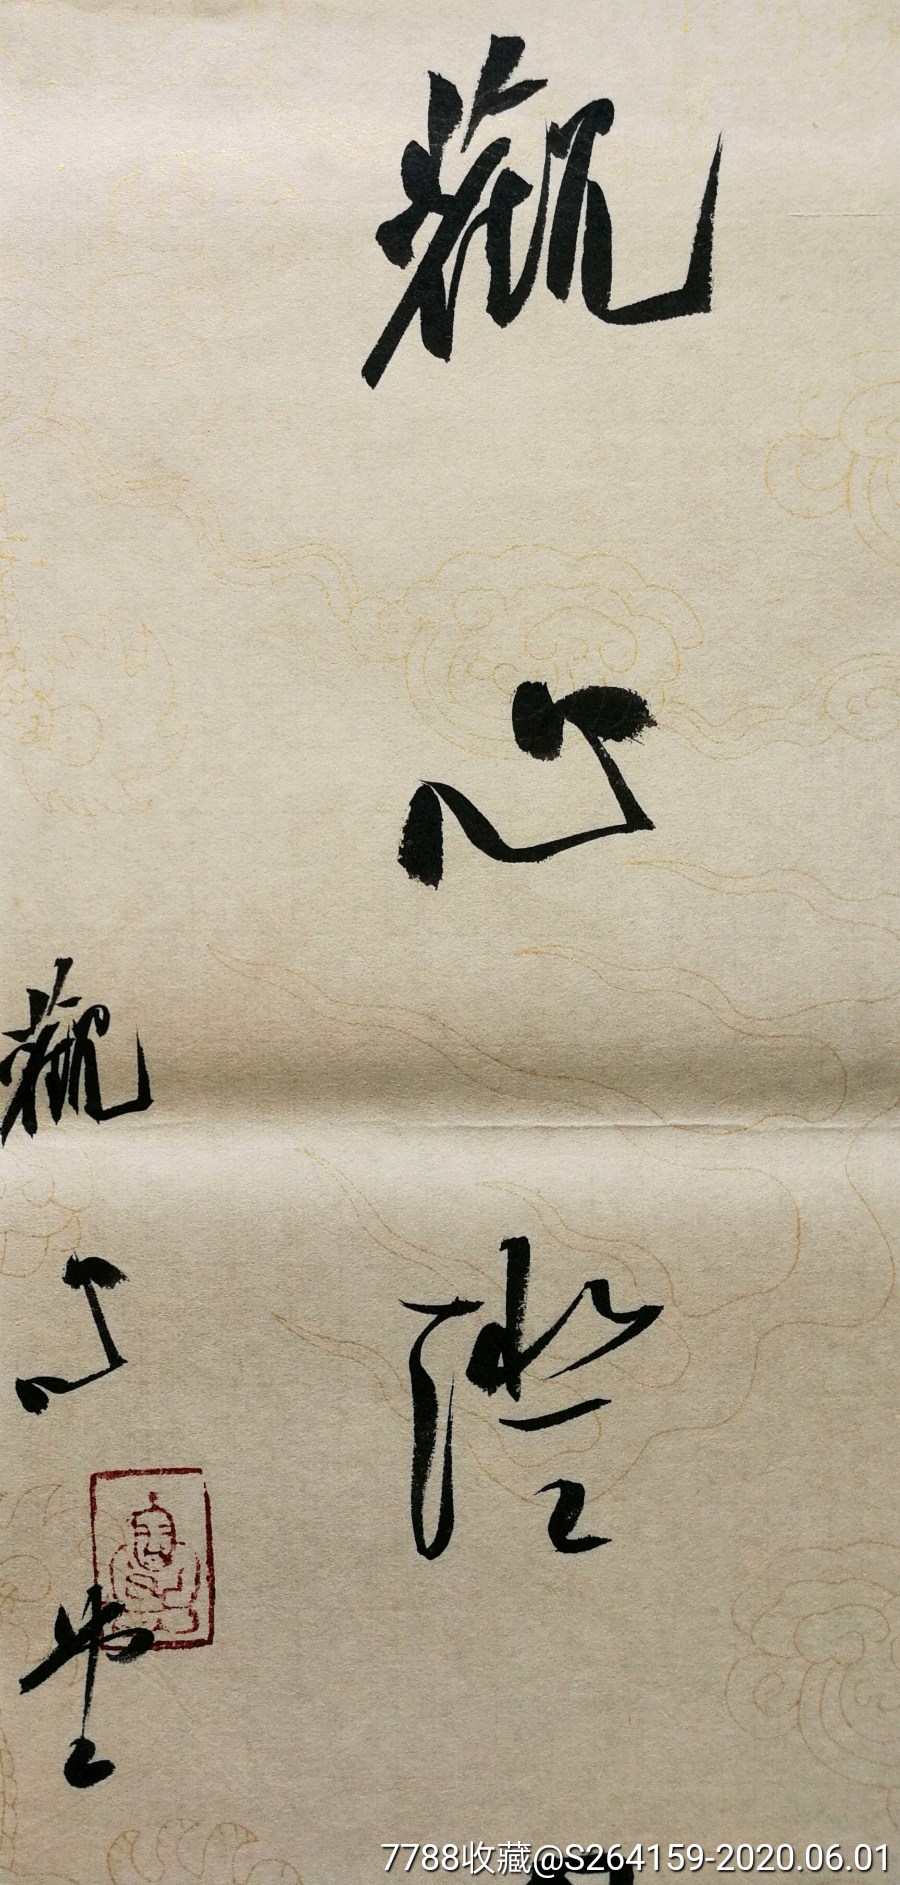 觀心證
觀心堂
7788收藏@S264159-2020.06.01